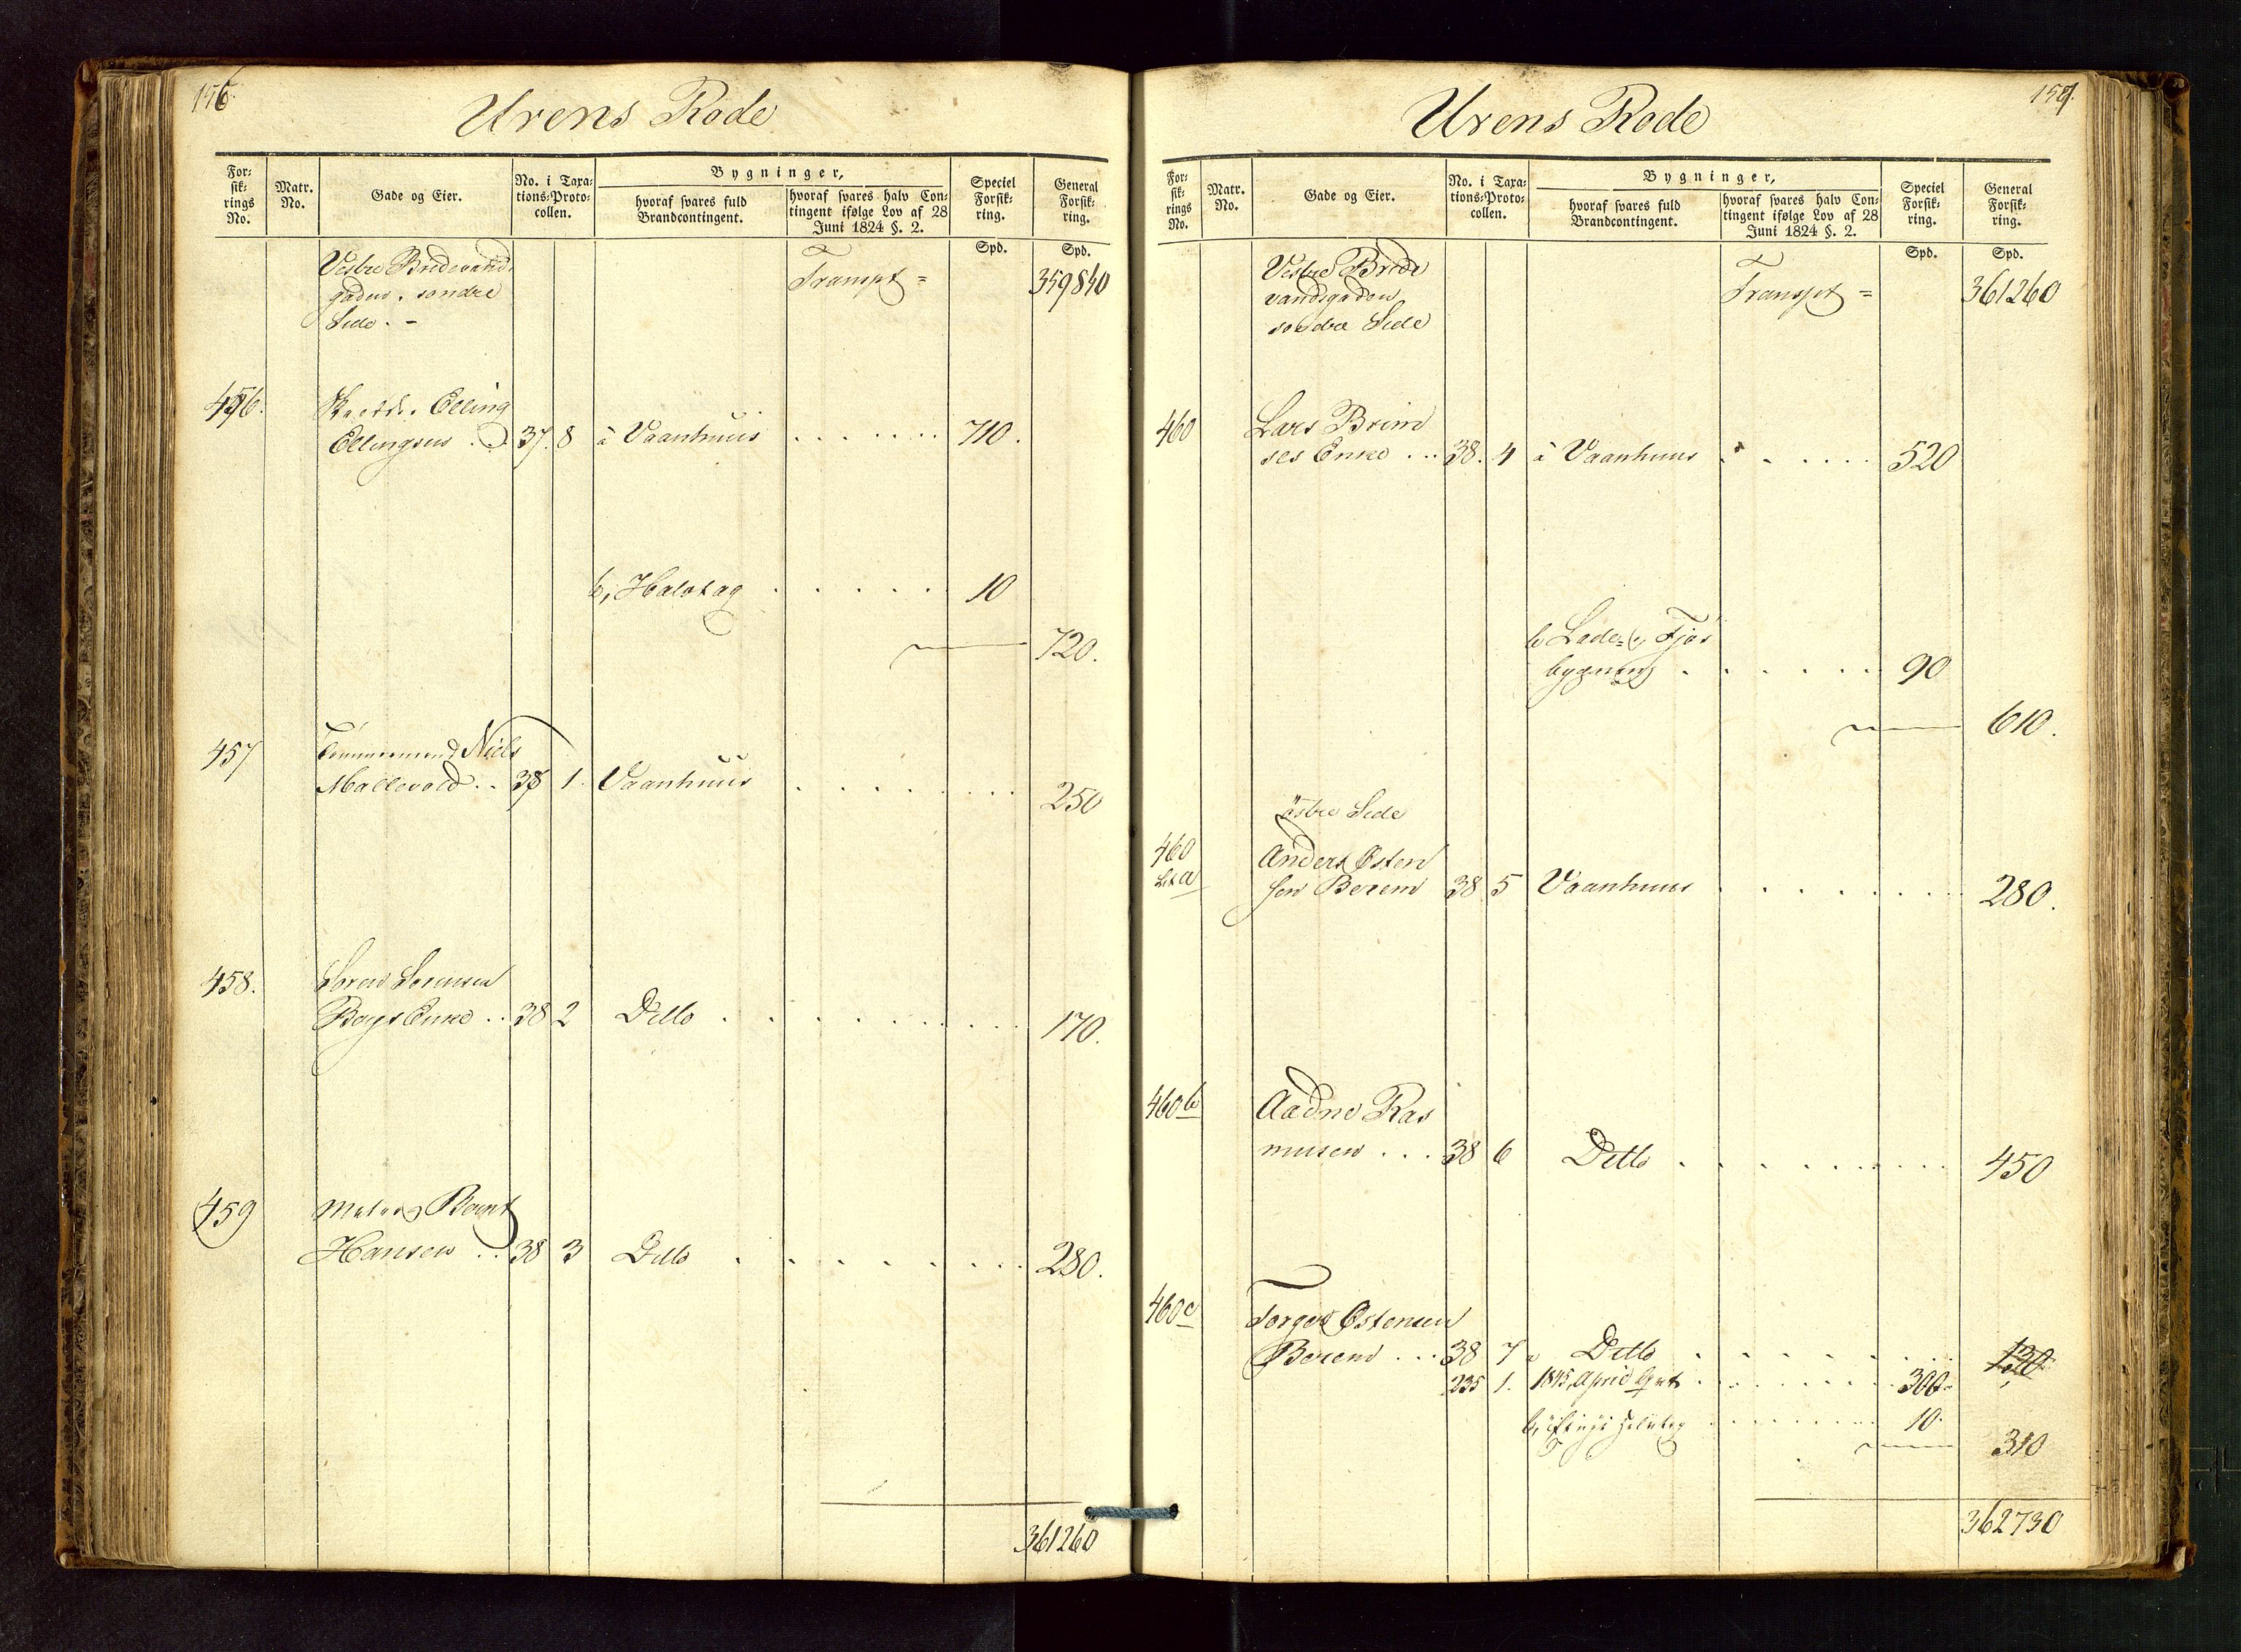 156.
Urens Rode
For:
sik:
rings
No.
Matr.
No.
Gade og Eier.
No. i Taxa:
tions:Proto:
collen.
Bygninger,
hvoraf svares fuld
Brandcontingent.
hvoraf svares halv Con:
tingent ifølge Lov af 28
Juni 1824 §. 2.
Speciel
Forsik:
ring.
General
Forsik:
ring.
Spd.
Spd.
Vestre Bredevand
gaden. søndre
Side. -
Transpt = 359840
456. Elling
Ellingsen . . 37. 8 a Vaanhuus . . . . . . . 710.
b, Halvtag . . . . . . 10
720.
457 Tømmermand Niels
Mallevold . . 38 1. Vaanhuus . . . . . . . . 250
458. Søren Sørensen
Bergs Enke . . 38 2 Ditto . . . . . . . . . . 170.
459 Matros Berent
Hansen . . 38 3 Ditto . . . . . . . . . 280.
361260
157.
Urens Rode
For:
sik:
rings
No.
Matr.
No.
Gade og Eier.
No. i Taxa:
tions:Proto:
collen.
Bygninger,
hvoraf svares fuld
Brandcontingent.
hvoraf svares halv Con:
tingent ifølge Lov af 28
Juni 1824 §. 2.
Speciel
Forsik:
ring.
General
Forsik:
ring.
Spd.
Spd.
Vestre Brede
vandsgaden
søndre Side
Transpt = 361260
460 Lars Brim
ses Enke . . . 38. 4 a Vaanhuus . . . . . . 520
b Lade= & Fjøs
bygning . . . . . . . 90
610.
østre Side
460 Anders Østen
Lit a sen Berem 38 5 Vaanhuus . . . . . . . . 280.
460 b Aadne Ras
musen . . . 38 6 Ditto . . . . . . . . . . 450
460 c Torger Østensen
Berem . . . 38 7 a Ditto . . . . . . . 130
235 1. 1845, April . . . . . . . . . 300-
b, Halvtag . . . . . . . . . 10.
310
362730